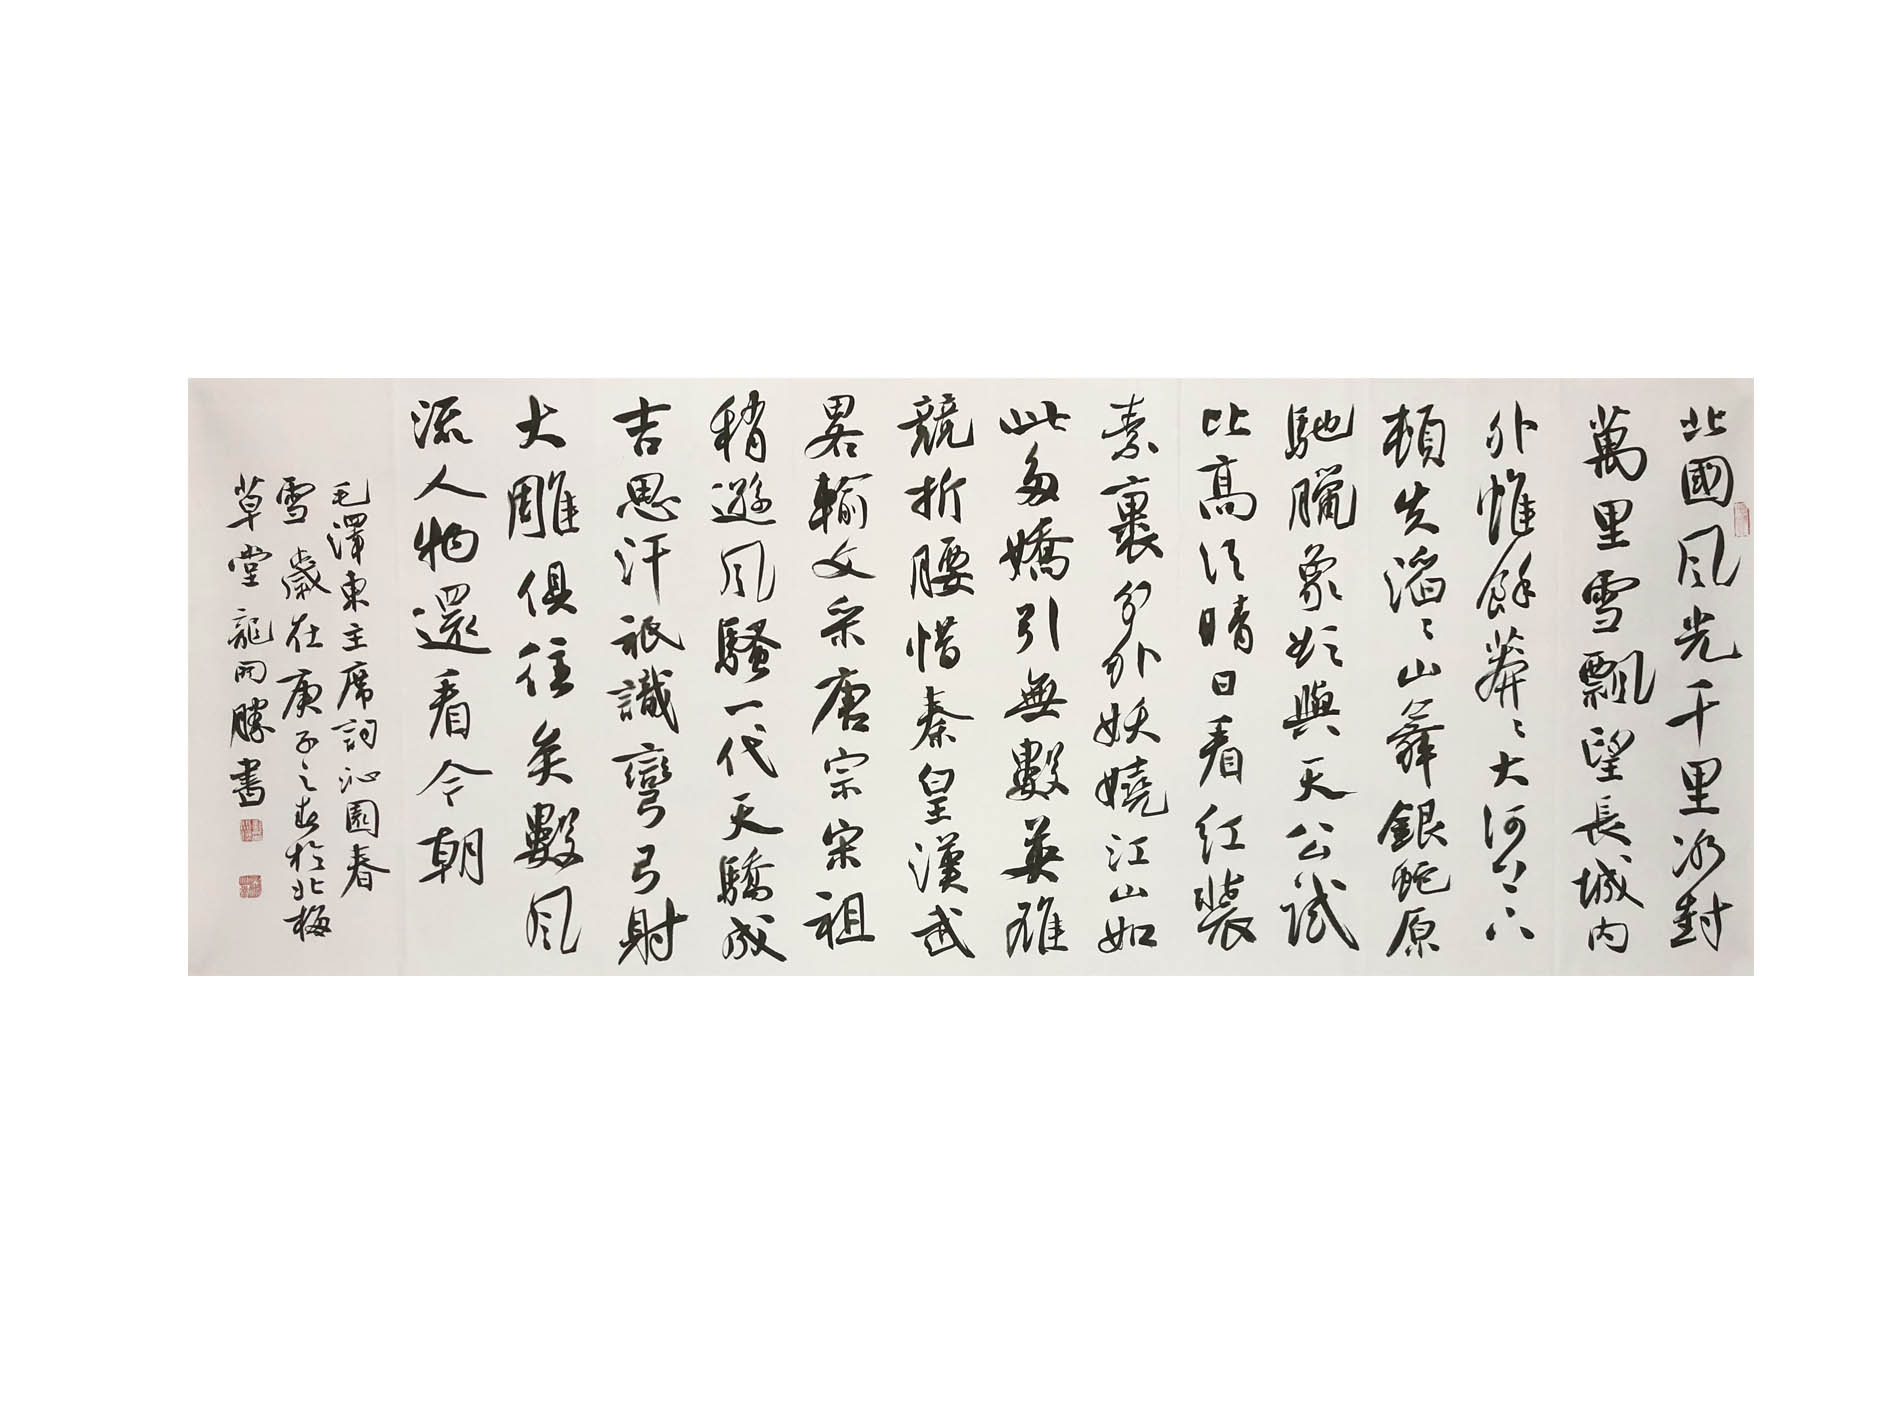 北國風光千里冰封
萬里雪飄望長城內
外惟餘莽々大河上下
頓失滔々山舞銀蛇原
馳臘象欲與天公試
比高須晴日看紅裝
素裹分外妖嬈江山如
此多嬌引無數英雄
競折腰惜秦皇漢武
畧輸文采唐宗宋祖
稍遜風騷一代天驕成
吉思汗祇識彎弓射
大雕俱往矣數風
流人物還看今朝
毛澤東主席詞沁園春
雪歲在庚子之春於北梅
草堂龍開勝書